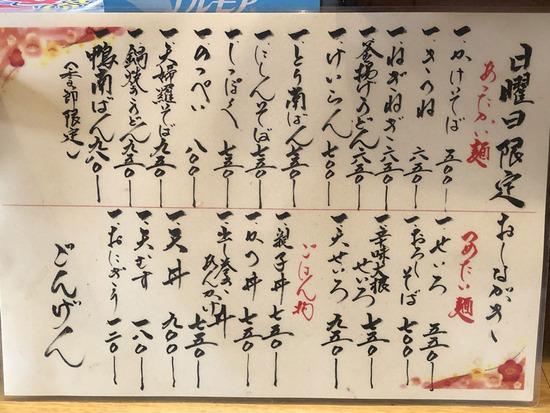 日曜日限定 おしながき
あったかい麺
一、かけそば 五〇〇
一、きつね 六五〇
一、ねぎねぎ 六五〇
一、釜揚げうどん 六五〇
一、けいらん 七〇〇
一、とり南ばん 七五〇
一、にしんそば 七五〇
一、しっぽく 七五〇
一、のっぺい 八〇〇
一、天婦羅そば 九五〇
一、鍋焼きうどん 九五〇
一、鴨南ばん 九八〇
（季節限定）
つめたい麺
一、せいろ 五五〇
一、おろしそば 七〇〇
一、辛味大根
せいろ 七五〇
一、天せいろ 九五〇
ごはん物
一、親子丼 七五〇
一、カツ丼 七五〇
一、出し巻き
あんかけ丼 七五〇
一、天丼 九〇〇
一、天むす 一八〇
一、おにぎり 一二〇
どんげん